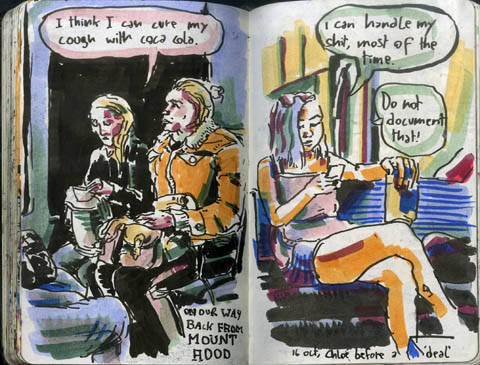 I think I can cure my
cough with coca cola.
ON OUR WAY
BACK FROM
MOUNT
HOOD
I can handle my
shit, most of the
time.
Do not
document
that!
16 oct, Chloe before a "deal"